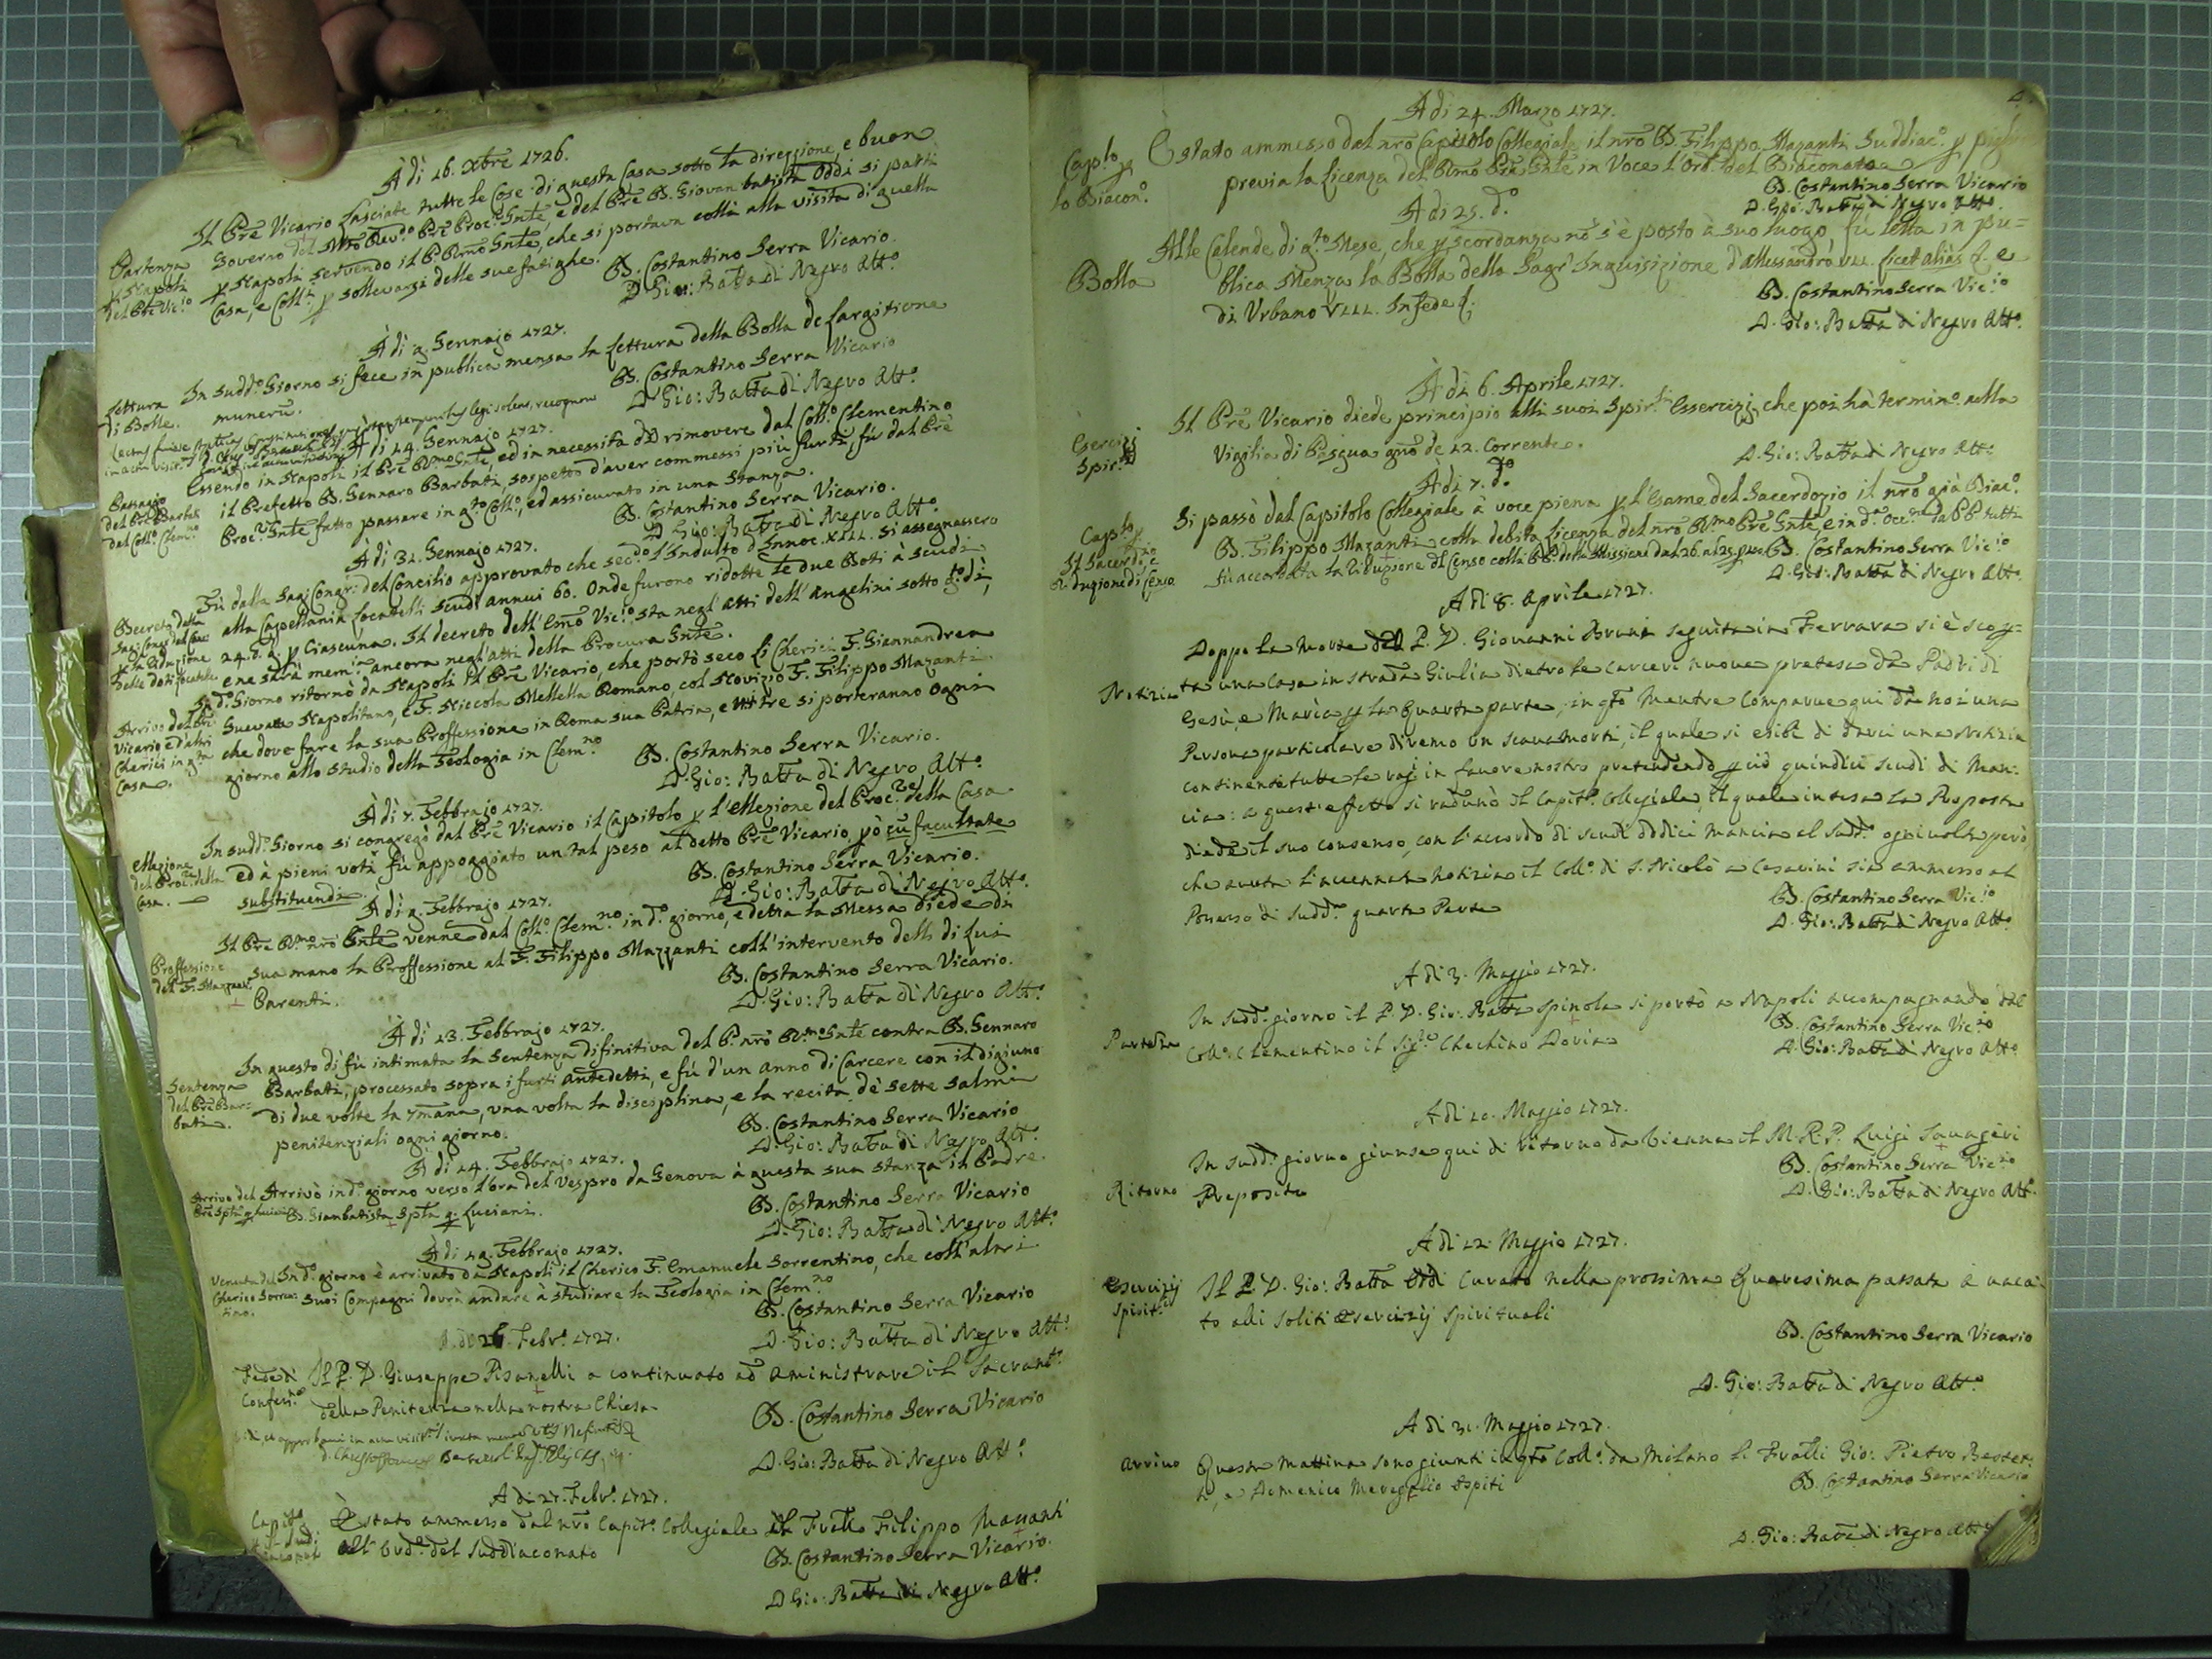 À dì 16. Xbre 1726.
Il Pre Vicario lasciate tutte le Cose di questa Casa sotto la direzzione, e buon
Partenza Governo del Mto Revdo Pre Procre Gnle, e del Pre D. Giovan batista Oddi si partì
p Napoli p Napoli servendo il P. Rmo Gnle, che si portava collà alla visita di quella
del Pre Vicio Casa, e Collo, p sollevarsi delle sue fatighe.
D. Costantino Serra Vicario.
D Gio: Batta di Negro Atto.
À dì 9. Gennajo 1727.
Lettura In suddo Giorno si fece in publica mensa la lettura della Bolla de largitione
di Bolle. munerū.
D. Costantino Serra Vicario
D. Gio: Batta di Negro Atto.
À dì 14. Gennajo 1727.
Essendo in Napoli il Pre Rmo Gnle, ed in necessità di rimovere dal Collo Clementino
Passagio il Prefetto D. Gennaro Barbati, sospetto d'aver commessi più furti, fù dal Pre
del Pre Barbati Procre Gnle fatto passare in qto Collo, ed assicurato in una Stanza.
dal Collo Clemno
D. Costantino Serra Vicario.
D Gio: Batta di Negro Atto.
À dì 31. Gennajo 1727.
Fù dalla Sag: Congr: del Concilio approvato che secdo l'Indulto d'Innoc. XIII. Si assegnassero
Decreto della alla Capellania Locatelli scudi annui 60. Onde furono ridotte le due Doti à scudi
24. p Ciascuna. Il decreto dell'Emo Vicio sta negl'atti dell'Angelini sotto qto dì,
delle doti Locatelli e ne sarà memia ancora negl'atti della Procura Gnle.
In do Giorno ritornò da Napoli il Pre Vicario, che portò seco li Cherici F. Giannandrea
Arrivo del Pre Napolitano, e F. Niccola Mellella Romano, col Novizio F. Filippo Mazanti
Vicario ed altri che dove fare la sua Proffessione in Roma sua Patria, e tre si porteranno ogni
Cherici in qta giorno allo studio della Teologia in Clemno
Casa.
D. Costantino Serra Vicario.
D. Gio: Batta di Negro Atto.
À dì 7. Febbrajo 1727.
Ellezione In suddo Giorno si congregò dal Pre Vicario il Capitolo p l'ellezione del Procre della Casa
del Procre della ed à pieni voti fù appoggiato un tal peso al detto Pre Vicario, pò cū facultate
Casa. substituendi.
D. Costantino Serra Vicario.
D. Gio: Batta di Negro Atto.
À dì 9. Febbrajo 1727.
Il Pre Rmo nrō Gnle venne dal Collo Clemno in do giorno, e detta la Messa diede di
Proffessione sua mano la Proffessione al F. Filippo Mazzanti coll'intervento delli di lui
del F. Mazzan. Parenti.
D. Costantino Serra Vicario.
D. Gio: Batta di Negro Atto.
À dì 13. Febbrajo 1727.
In questo dì fù intimata la Sentenza difinitiva del P. nrō Rmo Gnle contra D. Gennaro
Sentenza Barbati, processato sopra i furti antedetti, e fù d'un anno di Carcere con il digiuno
del Pre Bar= di due volte la 7mana, una volta la disciplina, e la recita de' sette salmi
bati. penitenziali ogni giorno.
D. Costantino Serra Vicario
D. Gio: Batta di Negro Atto.
À dì 14. Febbrajo 1727.
Arrivo del Arrivò in do giorno verso l'ora del Vespro da Genova à questa sua stanza il Padre
D. Gianbatista Spla q. Luciani.
D. Costantino Serra Vicario
D. Gio: Batta di Negro Atto.
À dì 19. Febbrajo 1727.
Venuta del In do giorno è arrivato da Napoli il Cherico F. Emanuele Sorrentino, che coll'altri
Cherico Sorren= suoi Compagni dovrà andare à studiare la Teologia in Clemno
tino.
D. Costantino Serra Vicario
D. Gio: Batta di Negro Atto.
A dì 26. Febro. 1727.
Fede di Il P. D. Giuseppe Pisanelli a continuato ad aministrare il Sacramto
Confesne della Penitenza nella nostra Chiesa
D. Costantino Serra Vicario
D. Gio: Batta di Negro Atto.
A dì 27. Febro. 1727.
Capito. p È stato ammesso dal nrō Capito. Collegiale il Frello Filippo Mazanti
all'Ordo. del Suddiaconato
D. Costantino Serra Vicario.
D Gio: Batta di Negro Atto.
4.
À dì 24. Marzo 1727.
Caplo p È stato ammesso dal nrō Capitolo Collegiale il nrō D. Filippo Mazanti Suddiaco. p
lo Diacono. previa la licenza del Rmo Pre Gnle in Voce l'Ord. del Diaconato
D. Costantino Serra Vicario
D. Gio: Batta di Negro Atto.
À dì 25. do
Alle Calende di qto Mese, che p scordanza nō s'è posto à suo luogo, fù letta in pu=
Bolla blica Menza la Bolla della Sagr. Inquisizione d'Allessandro VII. Licet aliàs &. e
di Urbano VIII. In fede &.
D. Costantino Serra Vicio
D. Gio: Batta di Negro Atto.
À dì 6. Aprile 1727.
Esercizj Il Pre Vicario diede principio alli suoi Spirli Essercizj, che poi hà termino. alla
Spirli Vigilia di Pasqua gnō de 12. Corrente.
D. Gio: Batta di Negro Atto.
À dì 7. do
Caplo p Si passò dal Capitolo Collegiale à voce piena p l'Esame del Sacerdozio il nrō già Diaco.
Il Sacerdo. e D. Filippo Mazanti colla debita licenza del nrō Rmo Pre Gnle, e in do. Occne da PP. tutti
Riduzione di Censo fù accordata la Riduzione del Censo colli PP. della Missione
D. Costantino Serra Vicio
D. Gio: Batta di Negro Atto.
A dì 8. Aprile 1727.
Doppo la Morte del P. D. Giovanni Bruni seguita in Ferrara si è scop=
Notizia ta una Casa in strada Giulia dietro le carceri nuove pretesa da Padri di
Gesù, e Maria p la Quarta parte, in qto Mentre Comparve qui da noi una
Persona particolare diremo un scavamorti, il quale si esibì di darci una Notizia
continente tutte le ragi in favore nostro pretendendo p ciò quindici scudi di Man=
cia: a quest'effetto si radunò il Capito. Collegiale, il quale intesa la Proposta
diede il suo consenso, con l'accordo di scudi dodici mancia al suddo. ogni volta però,
che avuta l'accennata notizia il Collo. di S. Nicolò a Cesarini sia ammesso al
Possesso di sudda. quarta Parte
D. Costantino Serra Vicio
D. Gio: Batta di Negro Atto.
A dì 3. Maggio 1727.
In suddo. giorno il P. D. Gio: Batta Spinola si portò a Napoli accompagnando dal
Partenza Collo. Clementino il Sigre Chechino Doria
D. Costantino Serra Vicio
D. Gio: Batta di Negro Atto.
A dì 10. Maggio 1727.
In suddo. giorno giunse qui di ritorno da Vienna il M. R. P. Luigi Savageri
Ritorno Preposito
D. Costantino Serra Vicio
D. Gio: Batta di Negro Atto.
A dì 12. Maggio 1727.
Esercizij Il P. D. Gio: Batta Oddi Curato nella prossima Quaresima passata à vaca=
Spirit. to alli soliti esercizij spirituali
D. Costantino Serra Vicario
D. Gio: Batta di Negro Atto.
A dì 31. Maggio 1727.
Arrivo Questa Mattina sono giunti in qto Collo. da Milano li Frălli Gio: Pietro Bestet=
ti, e Domenico Meregalio Ospiti
D. Costantino Serra Vicario
D. Gio: Batta di Negro Atto.